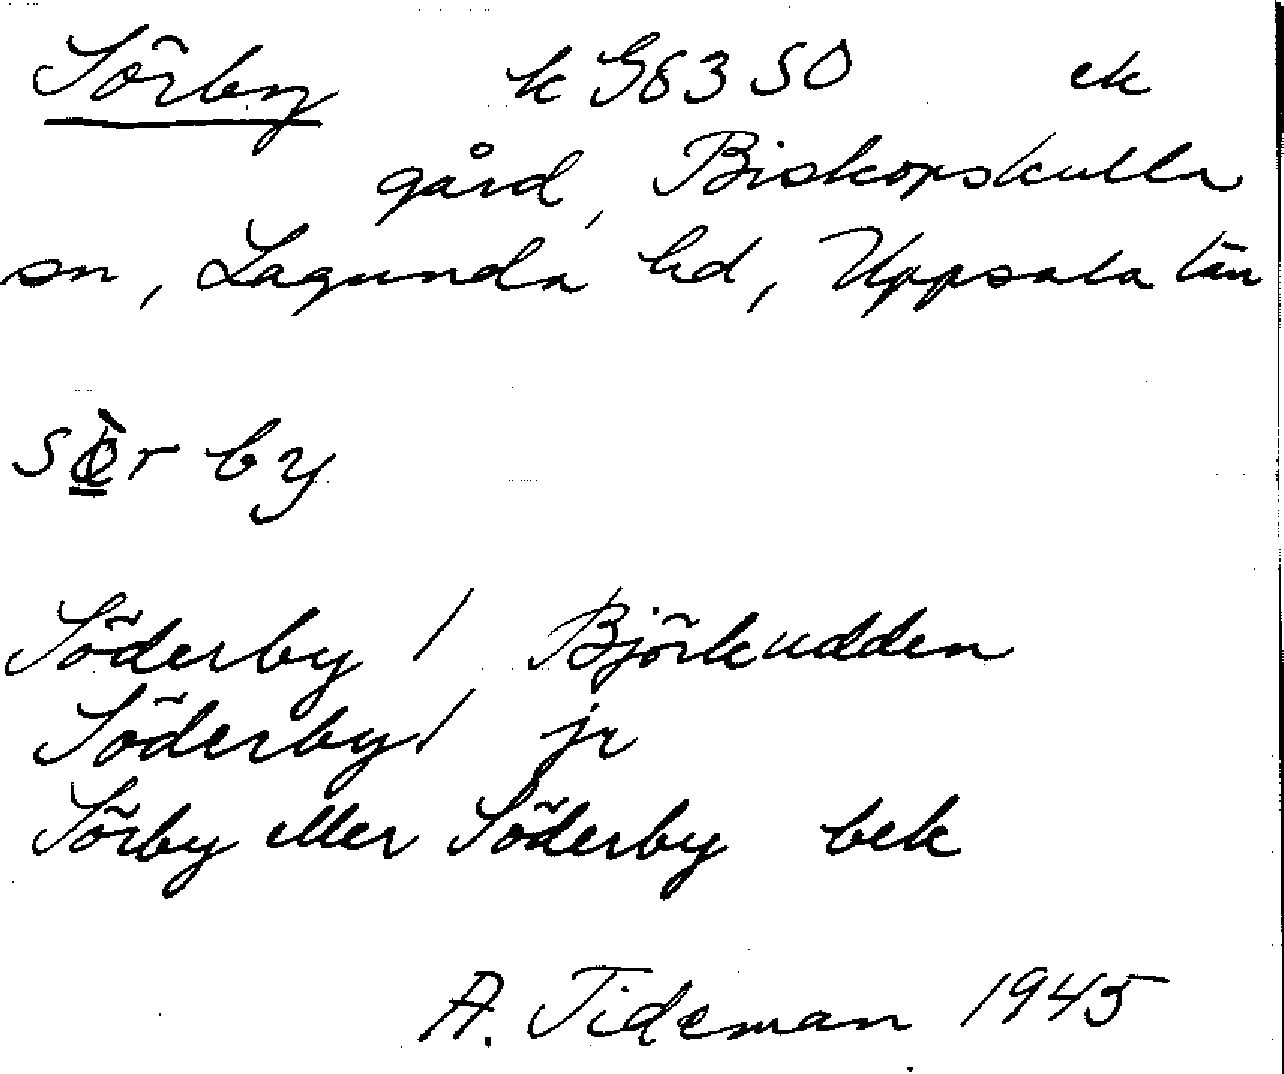 Sörby k G8350 ek
gård, Biskopskulla
sn, Lagunda hd, Uppsala län
by
Söderby / Björkudden
Söderby / jr
Sörby eller Söderby bek
A. Tideman 1945